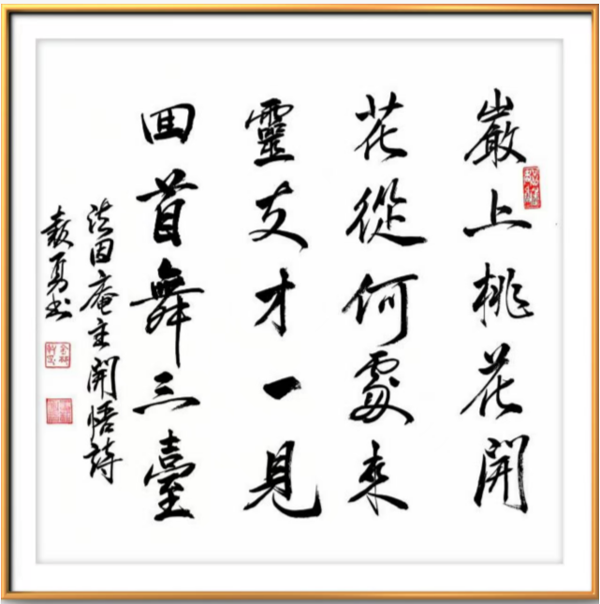 巖上桃花開
花從何處來
靈支才一見
回首舞三臺
法因庵主開悟詩
勇书